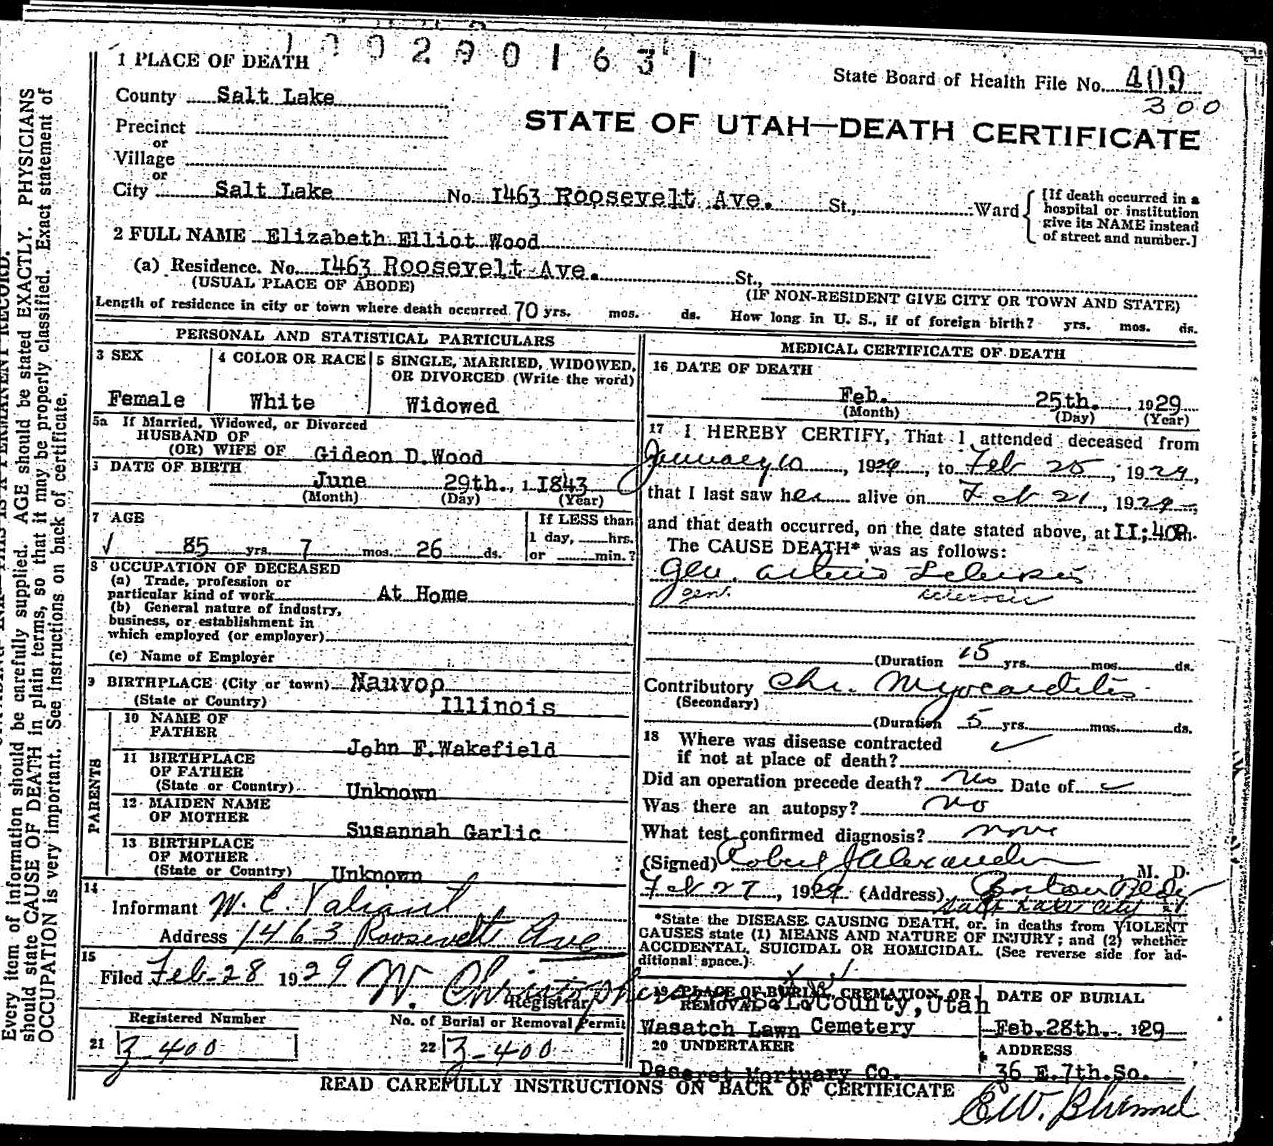 1002901631
1 PLACE OF DEATH
State Board of Health File No. 409
300
County Salt Lake
STATE OF UTAH—DEATH CERTIFICATE
Precinct
or
Village
or
City Salt Lake No. 1463 Roosevelt Ave. St., Ward
[If death occurred in a
hospital or institution
give its NAME instead
of street and number.]
2 FULL NAME Elizabeth Elliot Wood
(a) Residence. No. 1463 Roosevelt Ave. St.,
(USUAL PLACE OF ABODE) (IF NON-RESIDENT GIVE CITY OR TOWN AND STATE)
Length of residence in city or town where death occurred 70 yrs. mos. ds. How long in U. S., if of foreign birth? yrs. mos. ds.
PERSONAL AND STATISTICAL PARTICULARS
3 SEX
Female
4 COLOR OR RACE
White
5 SINGLE, MARRIED, WIDOWED,
OR DIVORCED (Write the word)
Widowed
5a If Married, Widowed, or Divorced
HUSBAND OF
(OR) WIFE OF Gideon D.Wood
DATE OF BIRTH
June 29th., 1 1843
(Month) (Day) (Year)
7 AGE
85 yrs. 7 mos. 26 ds.
If LESS than
1 day, hrs.
or min.?
8 OCCUPATION OF DECEASED
(a) Trade, profession or
particular kind of work At Home
(b) General nature of industry,
business, or establishment in
which employed (or employer)
(c) Name of Employer
9 BIRTHPLACE (City or town) Nauvop
(State or Country) Illinois
PARENTS
10 NAME OF
FATHER
John F.Wakefield
11 BIRTHPLACE
OF FATHER
(State or Country) Unknown
12 MAIDEN NAME
OF MOTHER
Susannah Garlic
13 BIRTHPLACE
OF MOTHER
(State or Country) Unknown
14
Informant W. E. Valiant
Address 1463 Roosevelt Ave
15
Filed Feb-28 1929 W. Christopherson
Registrar
Registered Number
21 3-400
No. of Burial or Removal Permit
22 3-400
MEDICAL CERTIFICATE OF DEATH
16 DATE OF DEATH
Feb. 25th. , 1929
(Month) (Day) (Year)
17 I HEREBY CERTIFY, That I attended deceased from
January 10, 1929, to Feb 25, 1929,
that I last saw her alive on Feb 21, 1929,
and that death occurred, on the date stated above, at II;40P m.
The CAUSE DEATH* was as follows:
Gen. Arterio Sclerosis
gen. sclerosis
(Duration 15 yrs. mos. ds.
Contributory Chr. Myocarditis
(Secondary)
(Duration 5 yrs. mos. ds.
18 Where was disease contracted
if not at place of death?
Did an operation precede death? no Date of
Was there an autopsy? no
What test confirmed diagnosis? none
(Signed) Robert J Alexander M. D.
Feb 27, 1929 (Address) Boston Bldg
Salt Lake City
*State the DISEASE CAUSING DEATH, or, in deaths from VIOLENT
CAUSES state (1) MEANS AND NATURE OF INJURY; and (2) whether
ACCIDENTAL, SUICIDAL OR HOMICIDAL. (See reverse side for ad-
ditional space.)
19 PLACE OF BURIAL, CREMATION, OR
REMOVAL S. L. County, Utah
Wasatch Lawn Cemetery
DATE OF BURIAL
Feb.28th. 1929
20 UNDERTAKER
Deseret Mortuary Co.
ADDRESS
36 E.7th.So.
READ CAREFULLY INSTRUCTIONS ON BACK OF CERTIFICATE
E.W.
Every item of information should be carefully supplied. AGE should be stated EXACTLY. PHYSICIANS
should state CAUSE OF DEATH in plain terms, so that it may be properly classified. Exact statement of
OCCUPATION is very important. See instructions on back of certificate.